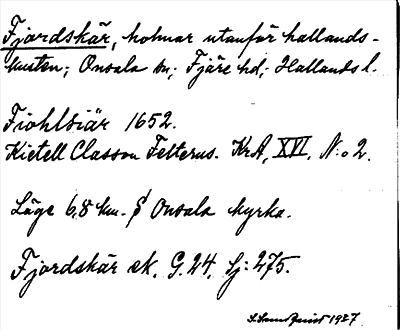 Fjordskär, holmar utanför hallands-
kusten; Onsala sn; Fjäre hd; Hallands l.
Fiohlsiär 1652.
Kietell Classon Felterus. KrA, XVI, N:o 2.
Läge 6,8 km. S Onsala kyrka.
Fjordskär ek. G. 24, Sj: 275.
1927